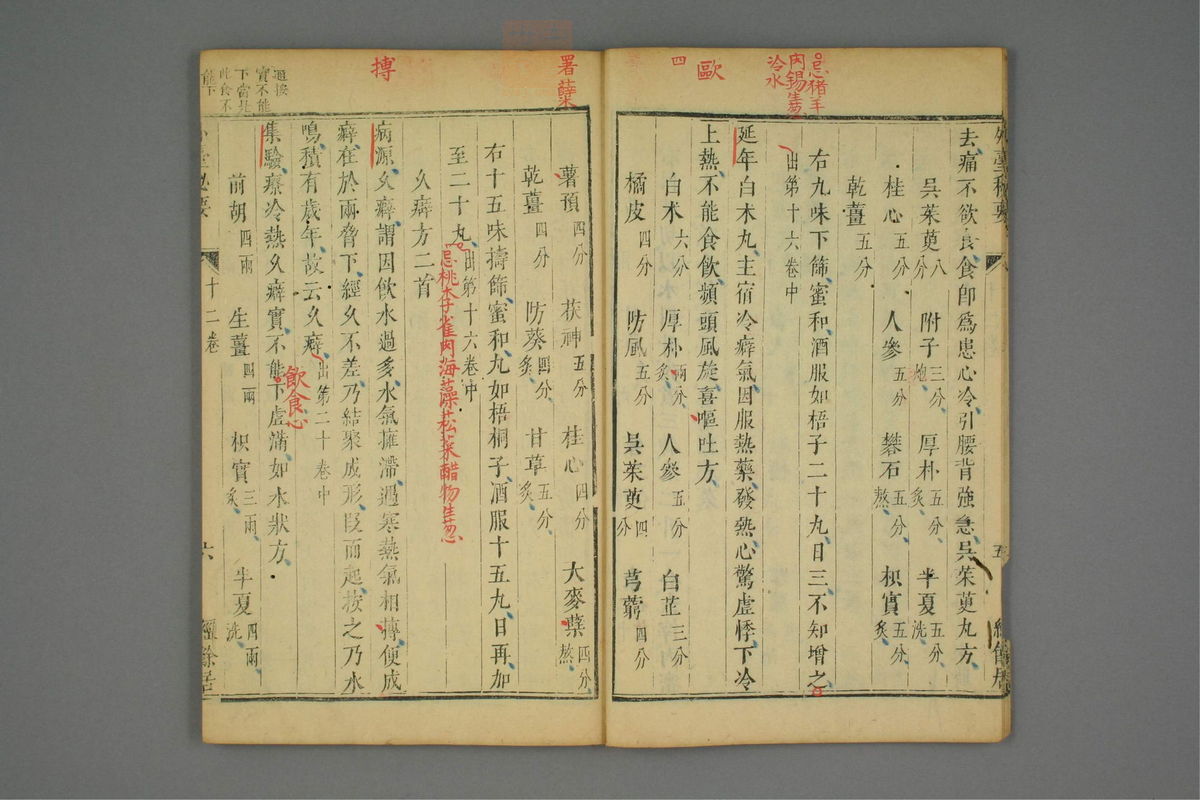 忌猪羊
肉餳生葱
冷水
歐
四
外臺秘要
五
去痛不欲食食卽爲患心冷引腰背強急吳茱萸丸方
吳茱萸八分 附子三分炮 厚朴五分炙 半夏五分洗
桂心五分 人參五分 礬石五分熬 枳實五分炙
乾薑五分
右九味下篩蜜和酒服如梧子二十丸日三不知增之
出第十六卷中
延年白朮丸主宿冷癖氣因服熱藥發熱心驚虛悸下冷
上熱不能食飲頻頭風旋喜嘔吐方
白朮六分 厚朴兩分炙 人參五分 白芷三分
橘皮四分 防風五分 吳茱萸四分 芎藭四分
署
蘖
薯預四分 茯神五分 桂心四分 大麥蘖四分熬
乾薑四分 防葵四分炙 甘草五分炙
右十五味擣篩蜜和丸如梧桐子酒服十五丸日再加
至二十丸出第十六卷中
忌桃李雀肉海藻菘菜醋物生葱
久癖方二首
搏
病源久癖謂因飲水過多水氣擁滯遇寒熱氣相摶便成
癖在於兩脅下經久不差乃結聚成形叚而起按之乃水
鳴積有歲年故云久癖出第二十卷中
飲食心
集驗療冷熱久癖實不能下虛滿如水狀方
前胡四兩 生薑四兩 枳實三兩炙 半夏四兩洗
十二卷
六
經餘居
實不能
下當是
此食不
能下